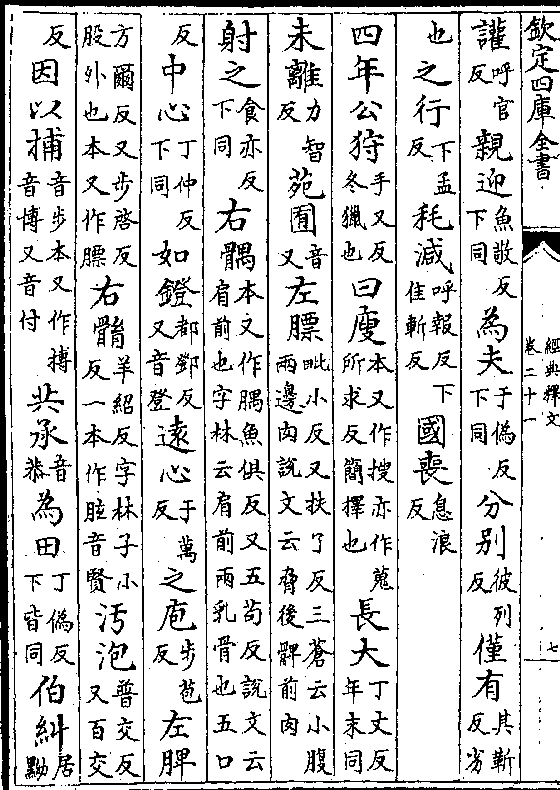 欽定四庫全書
經典釋文
卷二十一
七
讙呼官反親迎魚敬反下同為夫于偽反下同分别彼列反僅有其靳反劣
也之行下孟反秏減呼報反下佳斬反國喪息浪反
四年公狩手又反冬獵也曰廋本又作搜亦作蒐所求反簡擇也長大丁丈反年末同
未離力智反苑囿音又左膘毗小反又扶了反三蒼云小腹兩邊肉説文云脅後髀前肉
射之食亦反下同右髃本又作腢魚俱反又五苟反説文云肩前也字林云肩前兩乳骨也五口
反中心丁仲反下同如鐙都鄧反又音登遠心于萬反之庖步苞反左脾
方爾反又步啓反股外也本又作膘右䯚羊紹反字林子小反一本作䏚音賢汚泡普交反又百交
反因以捕音步本又作搏音博又音付共承音恭為田丁偽反下皆同伯糾居黝